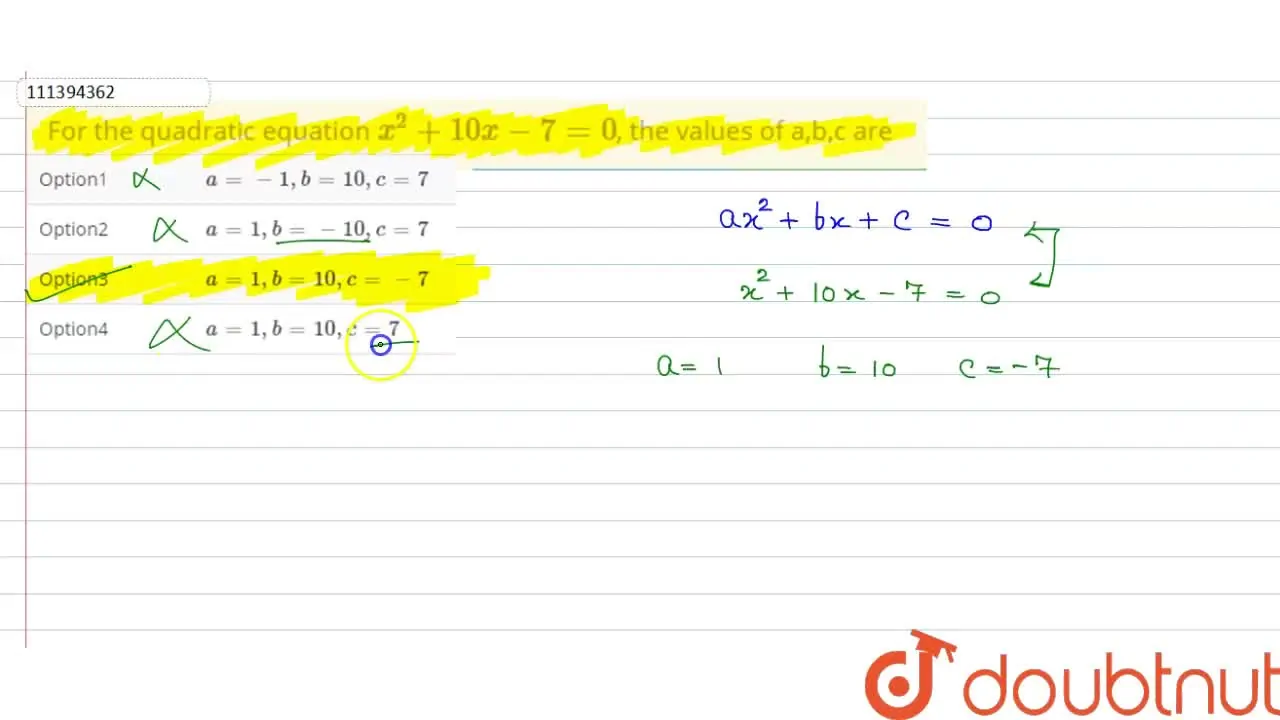 111394362
For the quadratic equation x² + 10x − 7 = 0, the values of a,b,c are
Option1 a = − 1, b = 10, c = 7
Option2 a = 1, b = − 10, c = 7
Option3 a = 1, b = 10, c = − 7
Option4 a = 1, b = 10, c = 7
ax² + bx + c = 0
x² + 10x − 7 = 0
a = 1 b = 10 c = − 7
doubtnut